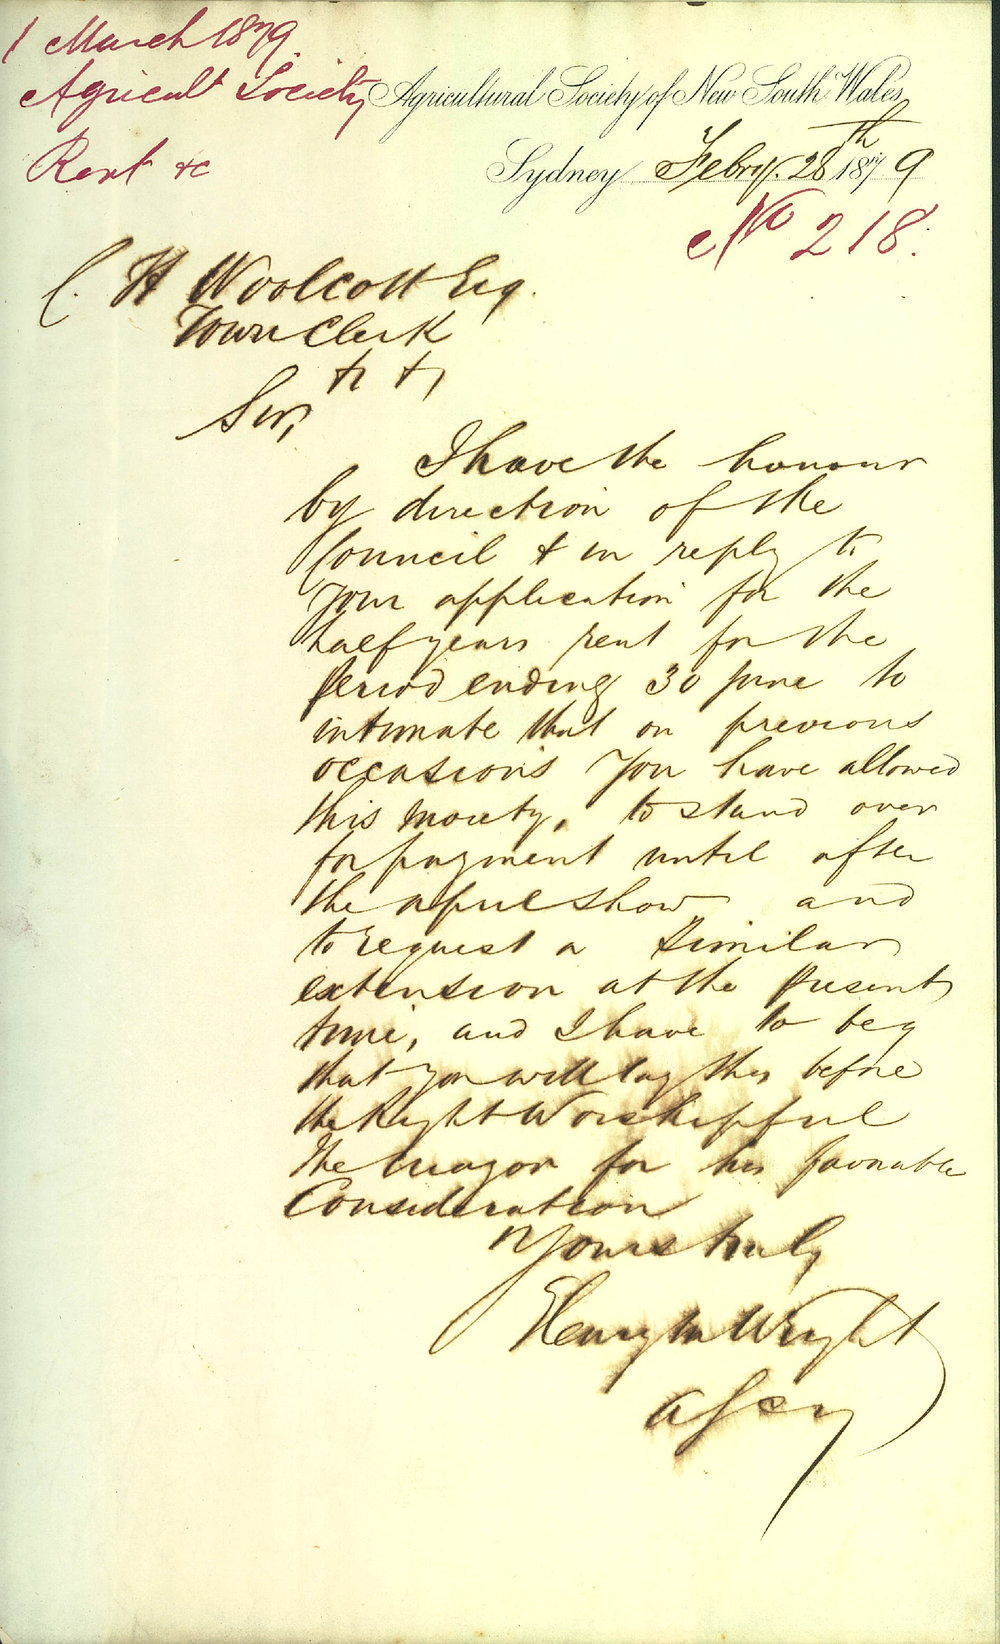 1 March 1879.
Agricult Society
Rent &c
Agricultural Society of New South Wales
Sydney Febry. 28th 1879
No 218.
C. H Woolcott Esq.
Town Clerk
&c &c
Sir,
I have the honour
by direction of the
Council & in reply to
your application for the
half years rent for the
period ending 30 June to
intimate that on previous
occasions you have allowed
this moiety, to stand over
for payment until after
the April show and
to request a similar
extension at the present
time, and I have to beg
that you will lay this before
the Right Worshipful
the Mayor for his favorable
Consideration
Yours truly
Henry M Wright